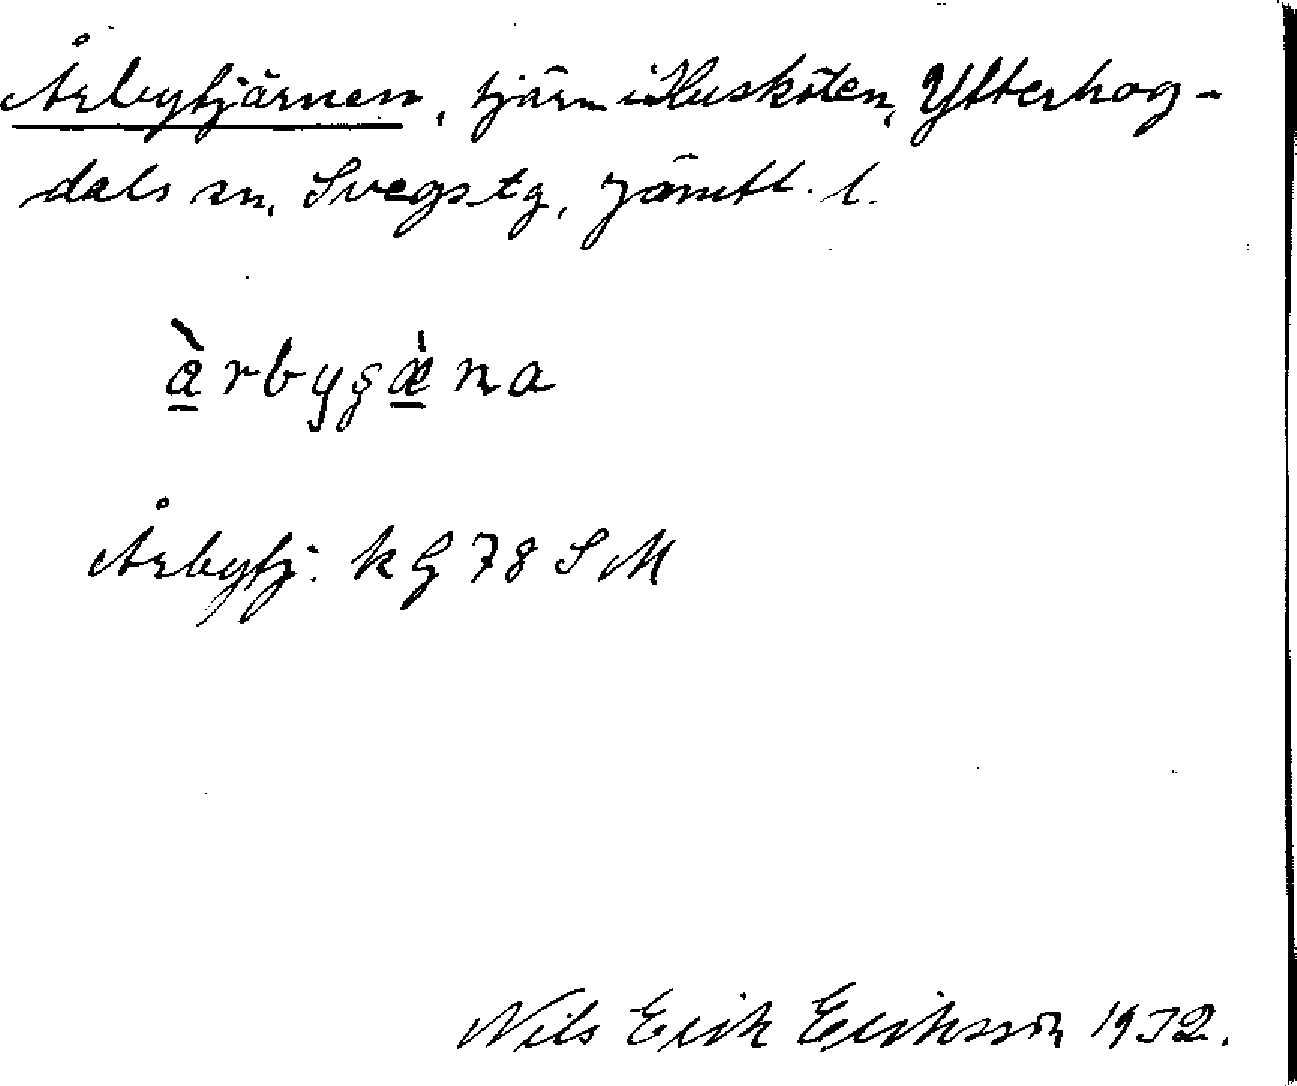 Årbytjärnen, tjärn i Huskölen, Ytterhog-
dals sn, Svegs tg, Jämtl. l.
àrbygæ̀na
Årbytj: k G 78 S M
Nils Erik Eriksson 1932.